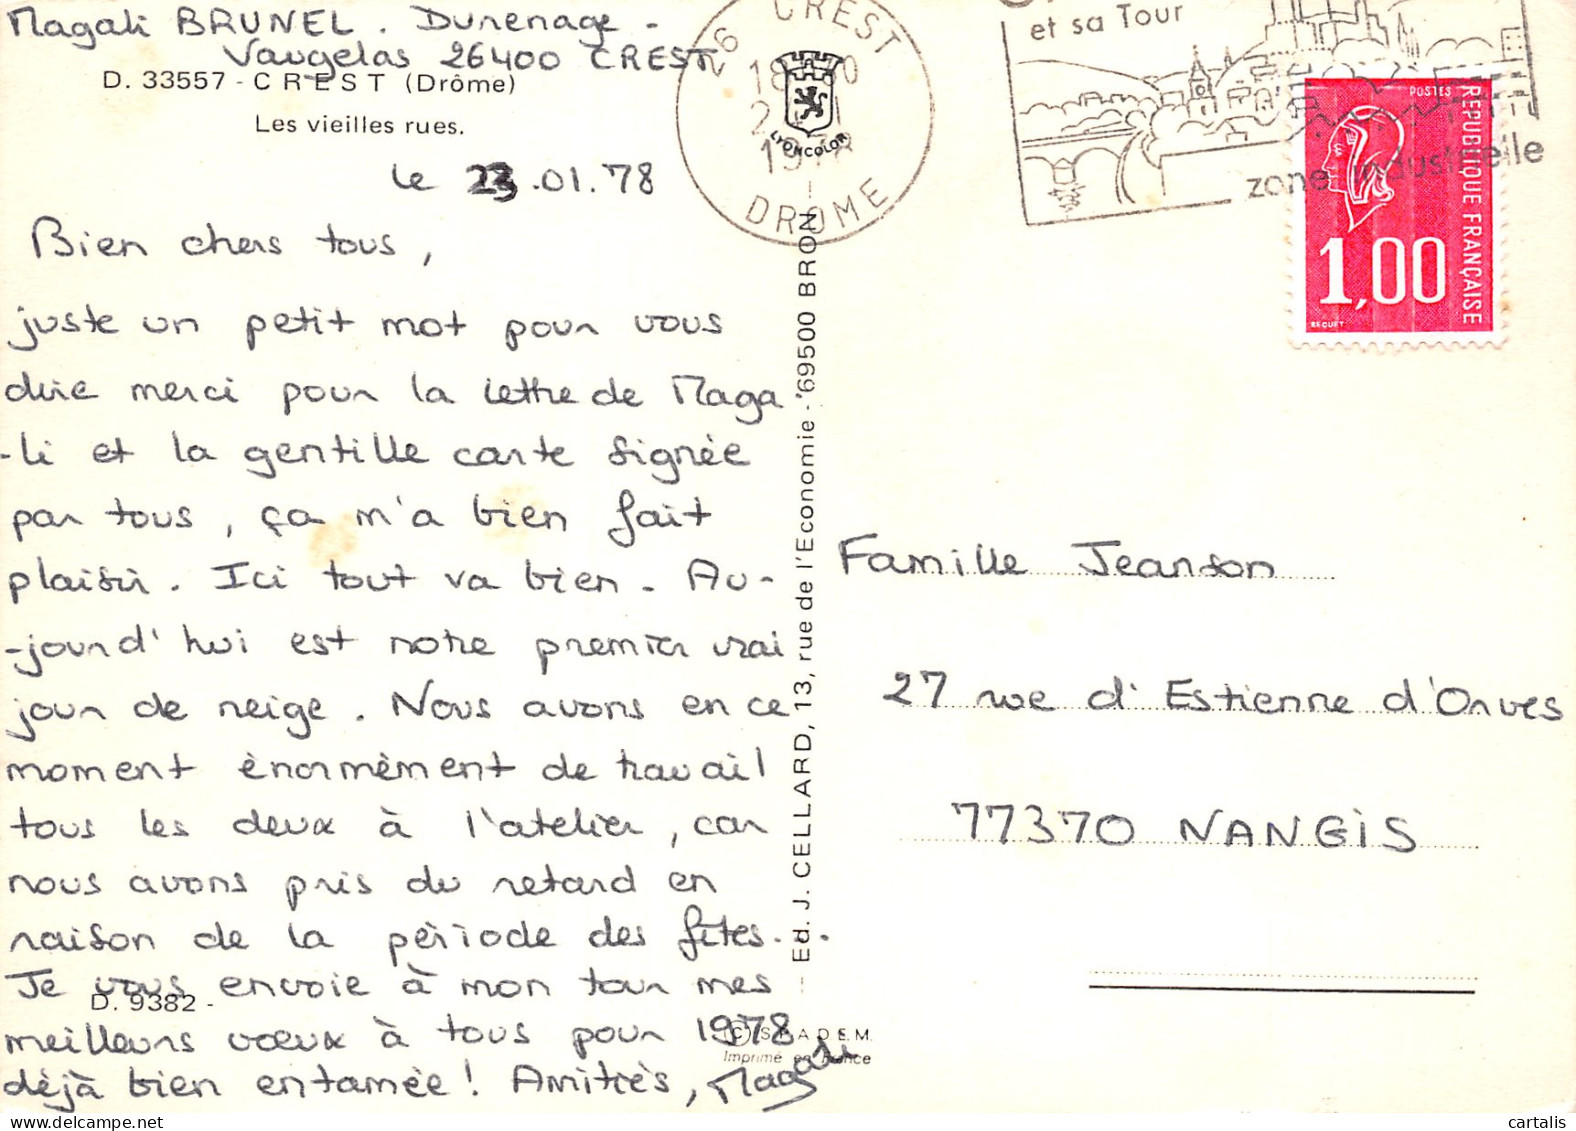 Magali BRUNEL. Dunenage -
Vaugelas 26400 CREST
D. 33557 - CREST (Drôme)
Les vieilles rues.
le 23.01.78
Bien chers tous,
juste un petit mot pour vous
dire merci pour la lettre de Maga
-li et la gentille carte signée
par tous, ça m'a bien fait
plaisir. Ici tout va bien. Au-
-jourd'hui est notre premier vrai
jour de neige. Nous avons en ce
moment ènormèment de travail
tous les deux à l'atelier, car
nous avons pris du retard en
raison de la pèriode des fêtes..
Je vous envoie à mon tour mes
D. 9382 -
meilleurs vœux à tous pour 1978
dèjà bien entamée! Amitiès, Magali
26 CREST
18
DROME
LYONCOLOR
Ed. J. CELLARD, 13, rue de l'Economie - 69500 BRON
(C) SPADEM
Imprimé en France
et sa Tour
zone industrielle
POSTES
REPUBLIQUE FRANÇAISE
1,00
BEQUET
Famille Jeanson
27 rue d'Estienne d'Orves
77370 NANGIS
cartalis